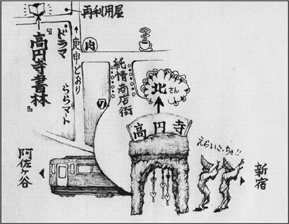 再利用屋
ドラマ
『高円寺書林』
庚申どおり
ららマート
肉
純情商店街
⑦
北さん
高円寺
えらいこっちゃ!!
阿佐ヶ谷
新宿